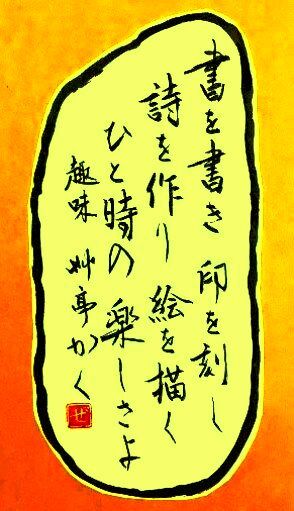 書を書き 印を刻し
詩を作り 絵を描く
ひと時の 楽しさよ
趣味 艸亭かく
ぜ